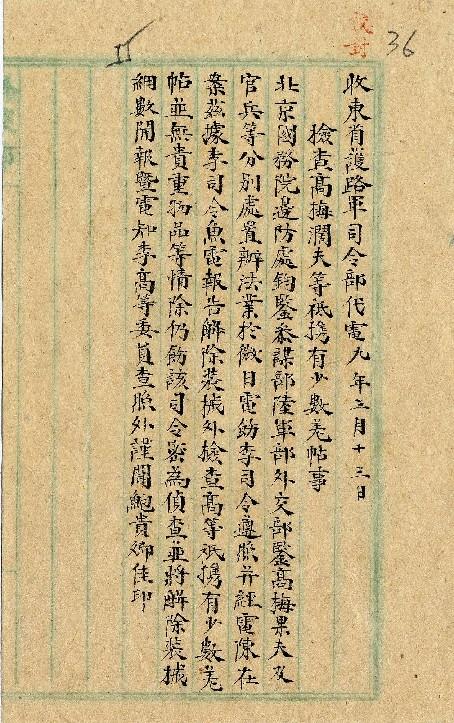 收東省護路軍司令部代電九年三月十三日
檢查高梅潤夫等祇携有少數羌帖事
北京國務院邊防處鈞鑒叅謀部陸軍部外交部鑒高梅果夫及
官兵等分別處置辦法業於微日電飭李司令遵照并經電陳在
案茲據李司令魚電報告解除裝械外檢查高等祇携有少數羌
帖並無貴重物品等情除仍飭該司令嚴為偵查並將解除裝械
細數開報暨電知李高等委員查照外謹聞鮑貴卿佳印
校对
36